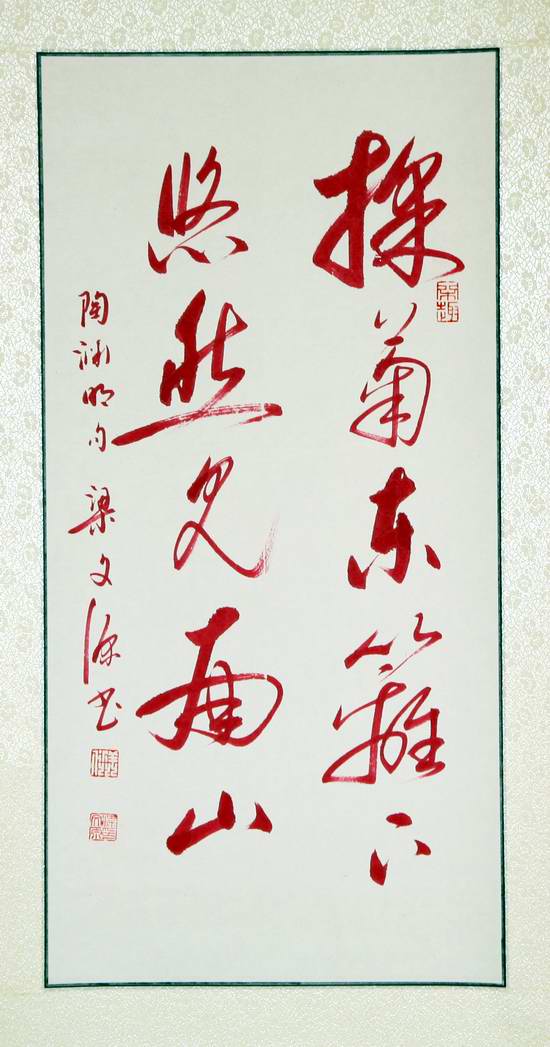 採菊东篱下
悠然见南山
陶渊明句 梁文源书